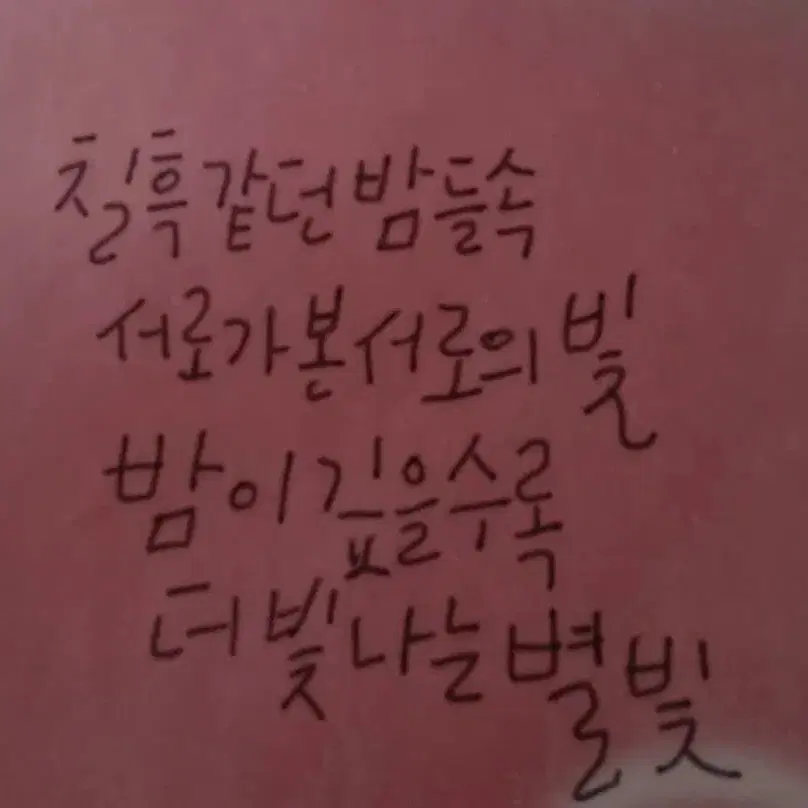 칠흑 같던 밤들 속
서로가 본 서로의 빛
밤이 깊을수록
더 빛나는 별빛